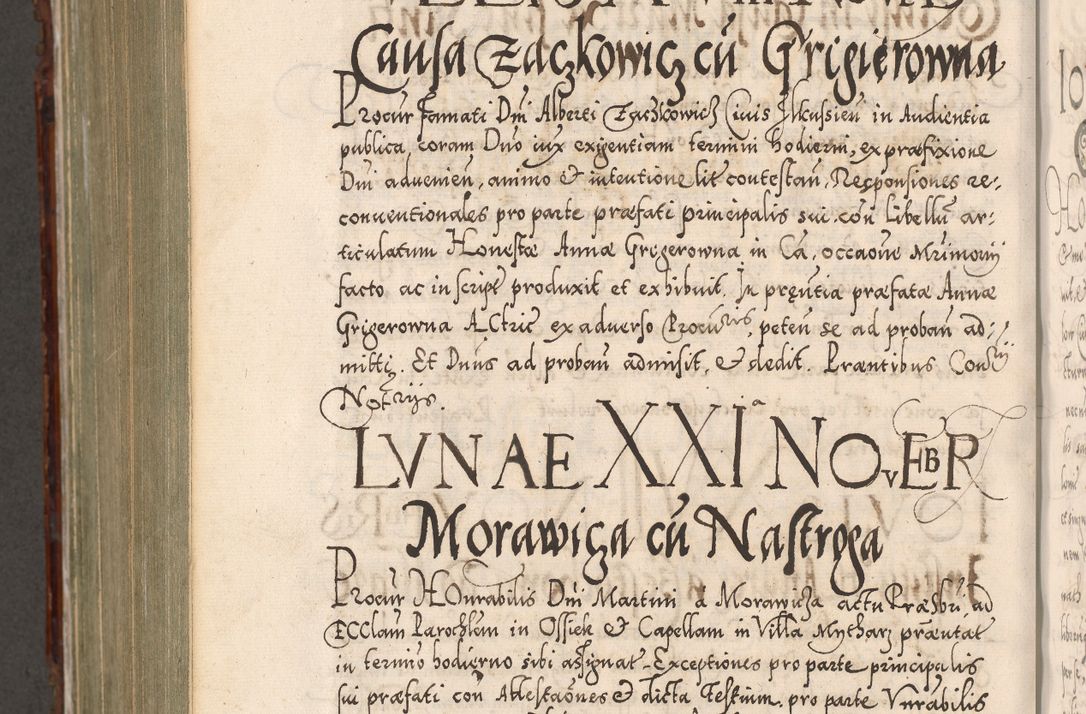 Causa Zaczkowicz cū Grigierowna
Procur Famati Dni Alberti Zaczkowicz Ciuis Ilkussien in Audientia
publica coram Dno iux exigentiam termini hodierni, ex præfixione
Dni advenien, animo & intentione lit contestan, Responsiones re-
conventionales pro parte præfati principalis sui con Libellū ar-
ticulatum Honestæ Annæ Grigerowna in Ca, occaōne Mrimonii
facto ac in script produxit et exhibuit. In pręntia præfatæ Annæ
Grigerowna Actric ex adverso Procuris, peten se ad proban ad-
mitti. Et Dnns ad proban admisit, & dedit. Præntibus Consrii
Notriis.
LVNAE XXI NOvEBR
Morawicza cū Nastroga
Procur HOnrabilis Dni Martini a Morawicza actu Præsbri ad
ECClam Parochlem in Ossiek & Capellam in Villa Mytharz præntat
in termio hodierno sibi assignat Exceptiones pro parte principalis
sui præfati con Attestaōnes & dicta Testium pro parte Vnrabilis